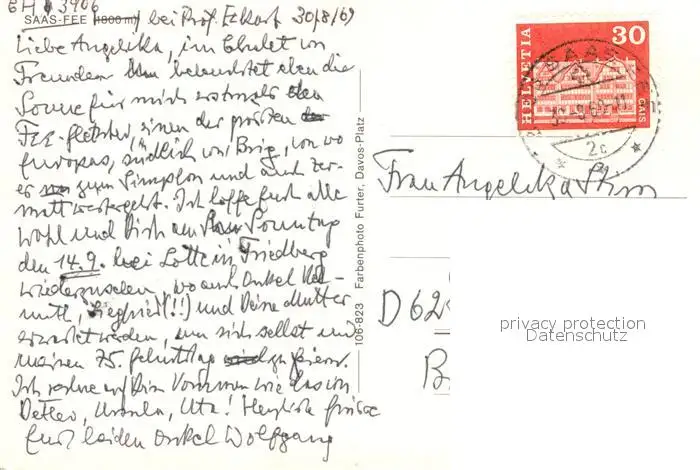 CH 3906
SAAS-FEE (1800 m) bei Prof. Eckart 30/8/69
Liebe Angelika, im Chalet von
Freunden beleuchtet eben die
Sonne für mich erstmals den
Fee-gletscher, einen der größten
Europas, südlich von Brig, von wo
es zum Simplon und nach Zer-
matt weitergeht. Ich hoffe Euch alle
wohl und Dich am Sonntag
den 14.9. bei Lotte in Friedberg
wiederzusehen, wo auch Onkel Hel-
muth, Siegfried (!!) und Deine Mutter
erwartet werden, um sich selbst und
meinen 75. Geburtstag zu feiern.
Ich rechne auf Dein Kommen wie das von
Detlev, Ursula, Uta! Herzliche Grüsse
Euch beiden Onkel Wolfgang
106-823 Farbenphoto Furter, Davos-Platz
HELVETIA
30
GAIS
2c
Frau Angelika
D 62
B
privacy protection
Datenschutz